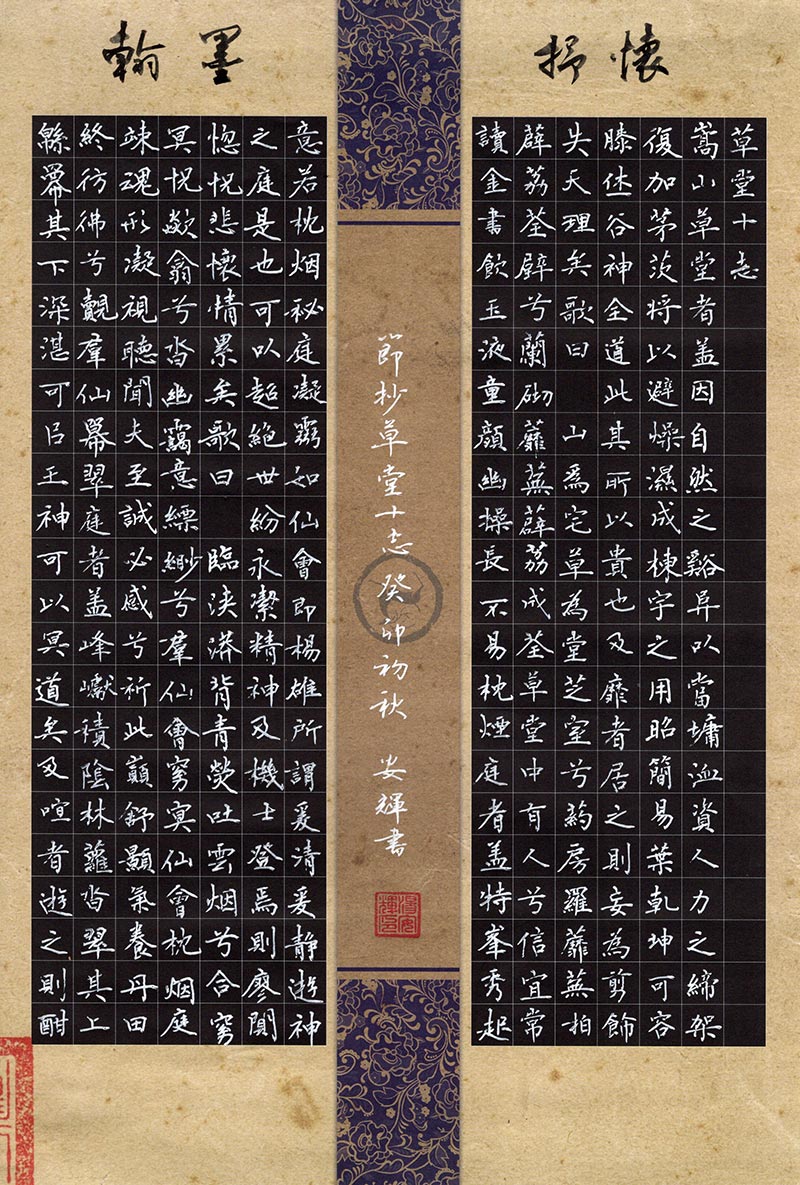 翰墨 抒懷
草堂十志
嵩山草堂者盖因自然之谿阜以當墉洫資人力之締架
復加茅茨將以避燥濕成棟宇之用昭簡易葉乾坤可容
膝休谷神全道此其所以貴也及靡者居之則妄為剪飾
失天理矣歌曰 山爲宅草為堂芝室兮葯房羅蘼蕪拍
薜荔荃壁兮蘭砌蘼蕪薜荔成荃草堂中有人兮信宜常
讀金書飲玉液童顏幽操長不易枕煙庭者盖特峯秀起
節抄草堂十志癸卯初秋 安輝書
意若枕烟秘庭凝霛如仙會即楊雄所謂爰清爰静遊神
之庭是也可以超絶世紛永潔精神及機士登焉則廖闃
惚恍悲懷情累矣歌曰 臨泱漭背青熒吐雲烟兮合窅
冥恍欻翕兮沓幽靄意縹緲兮羣仙會窅冥仙會枕烟庭
竦魂形凝視聽聞夫至誠必感兮祈此巔舒顥氣養丹田
終彷彿兮覿羣仙羃翠庭者盖峰巘積陰林蘿沓翠其上
緜羃其下深湛可㠯王神可以冥道矣及喧者遊之則酣